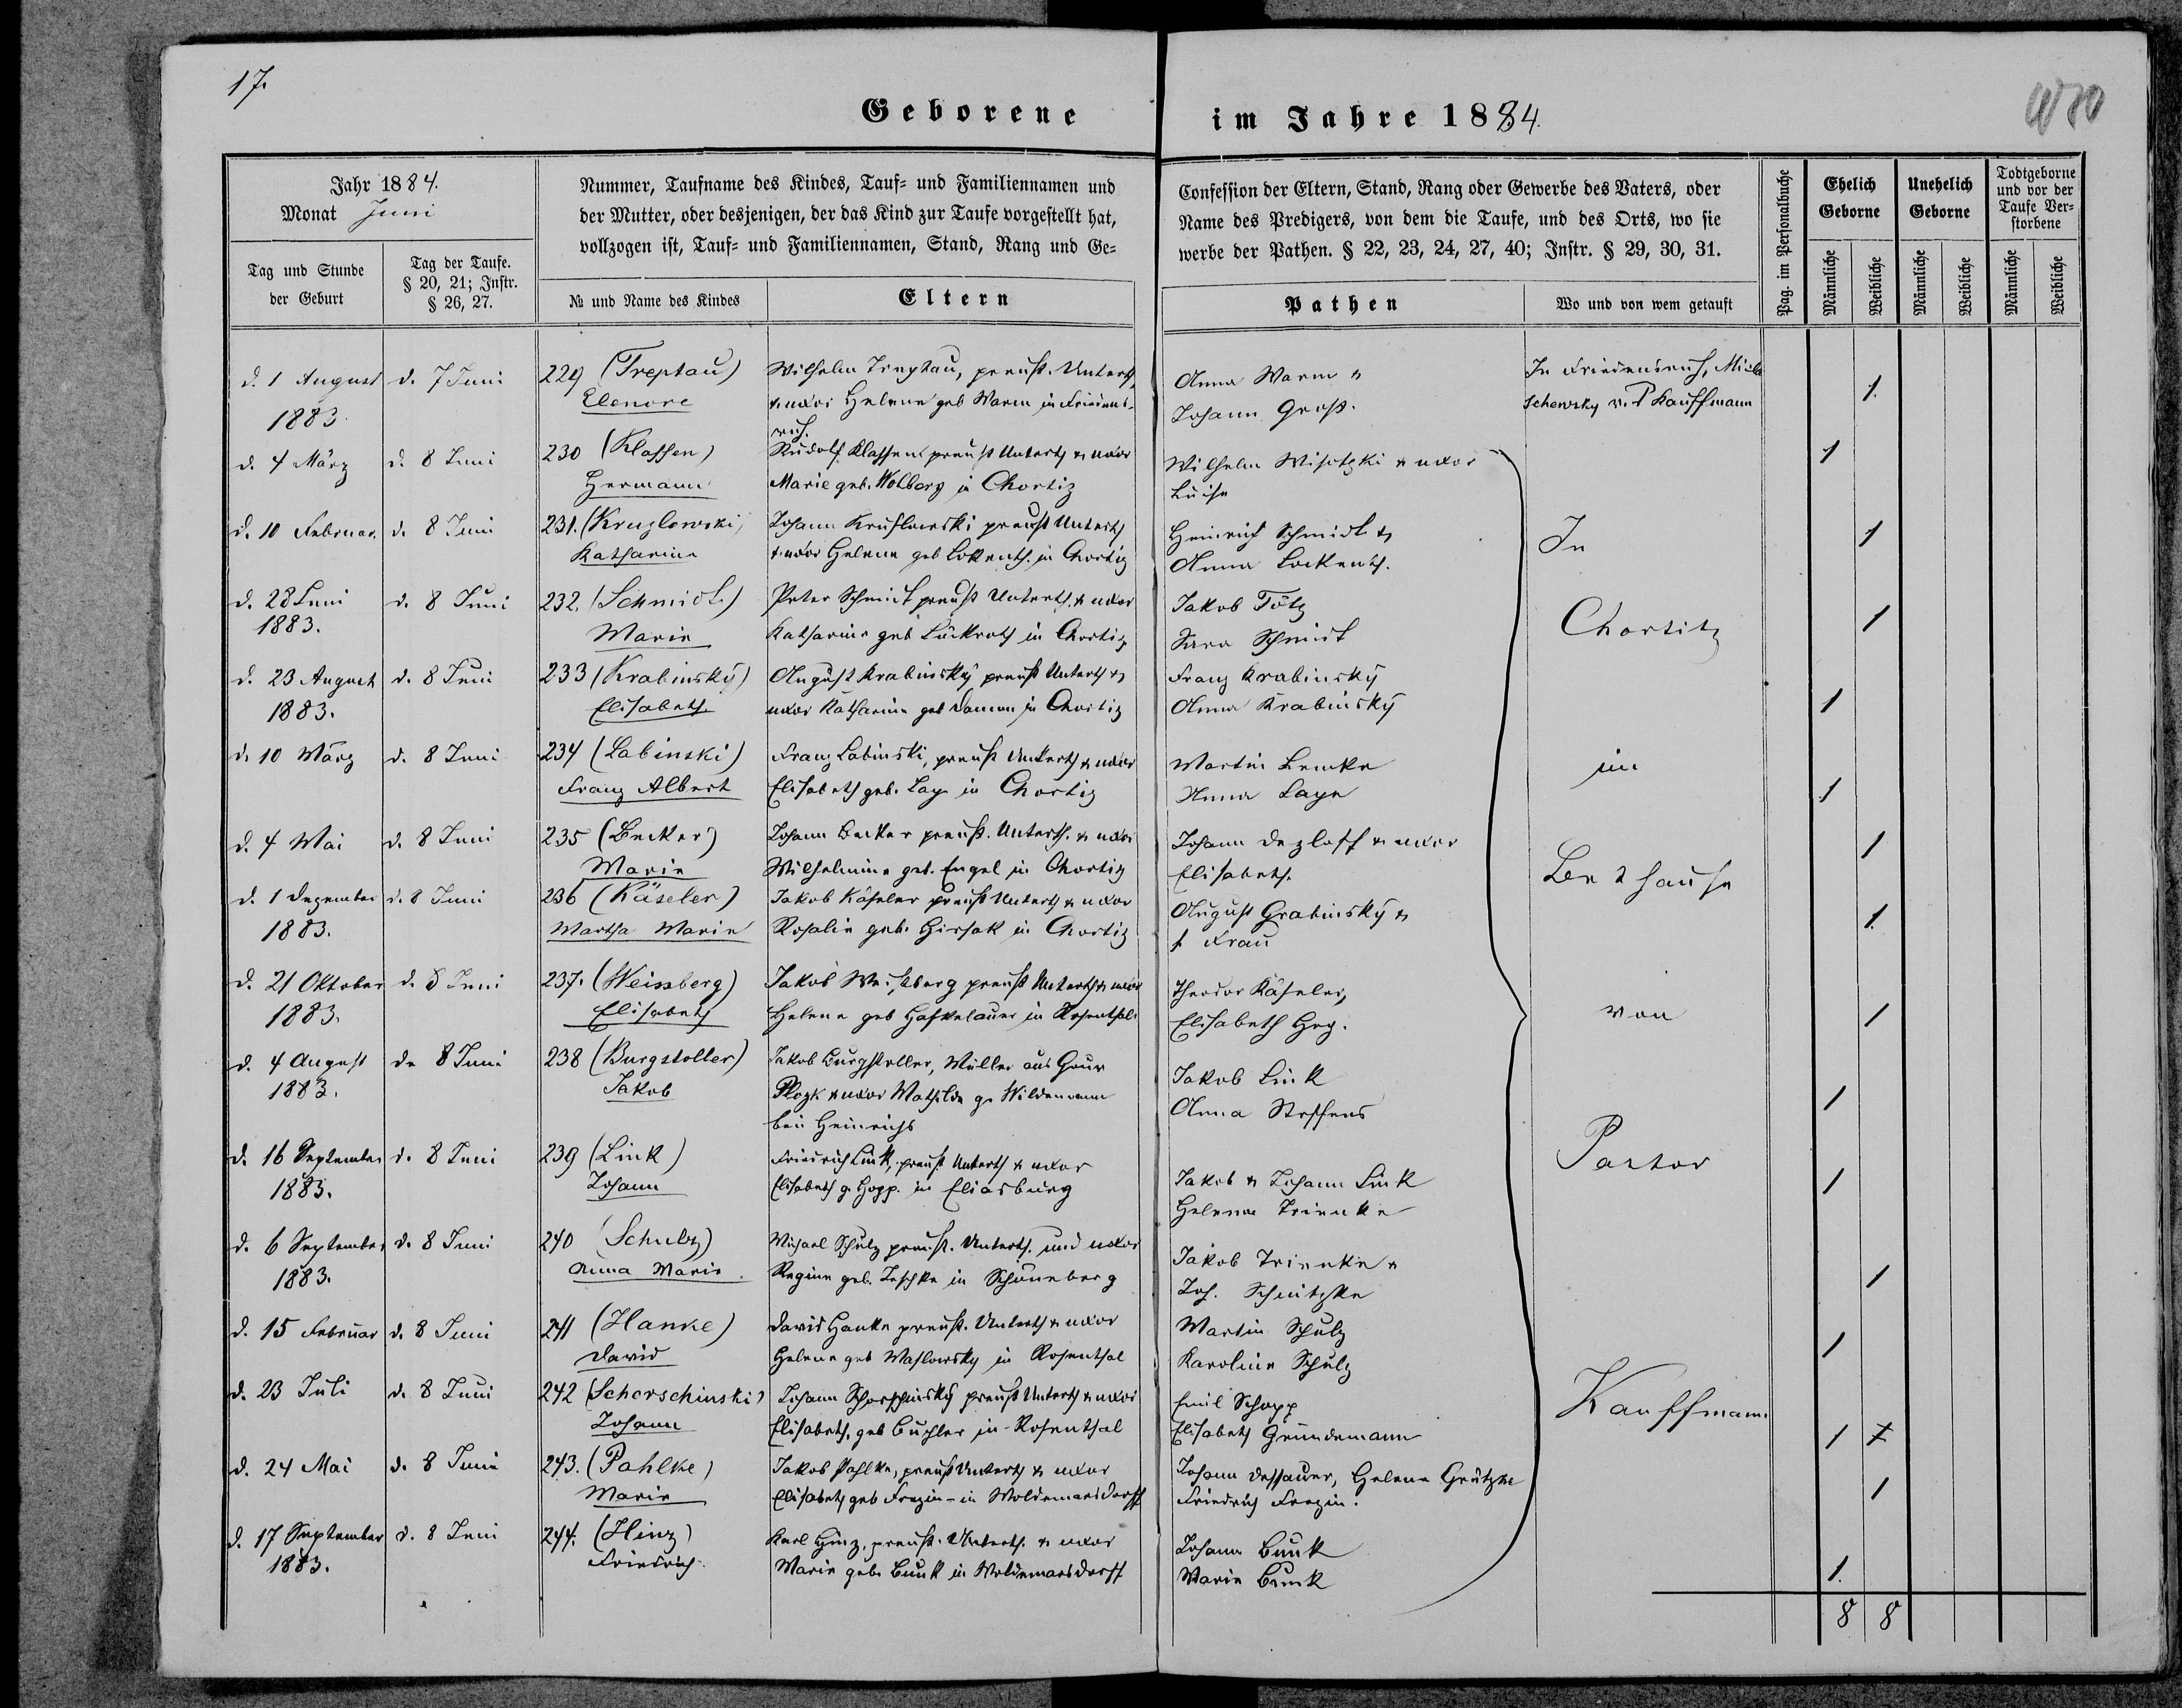 17.
Geborene im Jahre 1884.
Jahr 1884.
Monat Juni
Tag und Stunde
der Geburt
Tag der Taufe.
§ 20, 21; Instr.
§ 26, 27.
Nummer, Taufname des Kindes, Tauf= und Familiennamen und
der Mutter, oder desjenigen, der das Kind zur Taufe vorgestellt hat,
vollzogen ist, Tauf= und Familiennamen, Stand, Rang und Ge=
№ und Name des Kindes
Eltern
Confession der Eltern, Stand, Rang oder Gewerbe des Vaters, oder
Name des Predigers, von dem die Taufe, und des Orts, wo sie
werbe der Pathen. § 22, 23, 24, 27, 40; Instr. § 29, 30, 31.
Pathen
Wo und von wem getauft
Pag. im Personalbuche
Ehelich
Geborne
Unehelich
Geborne
Todtgeborne
und vor der
Taufe Ver=
storbene
Männliche
Weibliche
Männliche
Weibliche
Männliche
Weibliche
d. 1 August
1883.
d. 7 Juni
229 (Treptau)
Elenore
Wilhelm Treptau, preuß. Unterth,
& uxor Helene geb Warm in Friedens-
ruh.
Anna Warm &
Johann Groß.
In Friedensruh,
schewsky v. P Kauffmann
1.
d. 4 März
d. 8 Juni
230 (Klassen)
Hermann
Rudolf Klassen preuß Unterth & uxor
Marie geb. Wolberg in Chortiz
Wilhelm Wisotzki & uxor
Luise
1
d. 10 Februar.
d. 8 Juni
231. (Kruzlowski)
Katharina
Johann Kruslowski preuß Unterth
& uxor Helene geb Lokenth. in Chortiz
Heinrich Schmidt &
Anna Lockenth.
1
d. 28 Juni
1883.
d. 8 Juni
232. (Schmidt.)
Marie
Peter Schmidt preuß Unterth. & uxor
Katharina geb Lückroth in Chortiz
Jakob Tötz
Sara Schmidt
1
d. 23 August
1883.
d. 8 Juni
233 (Krabinsky)
Elisabeth
August Krabinsky preuß Unterth &
uxor Katharina geb Damm in Chortiz
Franz Krabinsky
Anna Krabinsky
1
d. 10 März
d. 8 Juni
234 (Labinski)
Franz Albert
Franz Labinski, preuß Unterth & uxor
Elisabeth geb. Lay in Chortiz
Martin Lemke
Anna Laye
1
d. 4 Mai
d. 8 Juni
235 (Becker)
Marie
Johann Becker preuß. Unterth. & uxor
Wilhelmine geb. Engel in Chortiz
Johann Dezlaff & uxor
Elisabeth.
1
d. 1 Dezember
1883.
d. 8 Juni
236 (Käseler)
Martha Marie
Jakob Käseler preuß Unterth & uxor
Rosalie geb. Hirsak in Chortiz
August Grabinsky &
s Frau
1.
d. 21 Oktober
1883.
d. 8 Juni
237. (Weissberg)
Elisabeth
Jakob Weissberg preuß Unterth & uxor
Helene geb Haskelauer in Rosenthal.
Theodor Käseler,
Elisabeth Hey.
1
d. 4 August
1883.
d. 8 Juni
238 (Burgstoller)
Jakob
Jakob Burgstoller, Müller aus Gouv
Plozk & uxor Mathilde g. Wildemann
bei Heinrichs
Jakob Link
Anna Steffens
1
d. 16 September
1883.
d. 8 Juni
239 (Link)
Johann
Friedrich Link, preuß Unterth & uxor
Elisabeth g. Hopp. in Eliasburg
Jakob & Johann Link
Helena Trienke
1
d. 6 September
1883.
d. 8 Juni
240 (Schulz)
Anna Marie.
Michael Schulz preuß. Unterth. und uxor
Regine geb. Jeschke in Schöneberg
Jakob Trienke &
Joh. Schnitzke
1
d. 15 Februar
d. 8 Juni
241 (Hanke)
David
David Hanke preuß. Unterth & uxor
Helene geb Maslowsky in Rosenthal
Martin Schulz
Karoline Schulz
1
d. 23 Juli
d. 8 Juni
242 (Schorschinski)
Johann
Johann Schorschinsky preuß Unterth & uxor
Elisabeth, geb Buchler in Rosenthal
Emil Schopp
Elisabeth Grundemann
1
d. 24 Mai
d. 8 Juni
243. (Pahlke)
Marie
Jakob Pahlke, preuß Unterth & uxor
Elisabeth geb Frezin in Woldemarsdorff
Johann Dessauer, Helene Grützke
Friedrich Frezin.
1
d. 17 September
1883.
d. 8 Juni
244. (Hinz)
Friedrich
Karl Hinz, preuß. Unterth. & uxor
Marie geb. Bunk in Woldemarsdorff
Johann Bunk
Marie Bunk
1.
In
Chortitz
im
Bethause
von
Pastor
Kauffmann
8 8